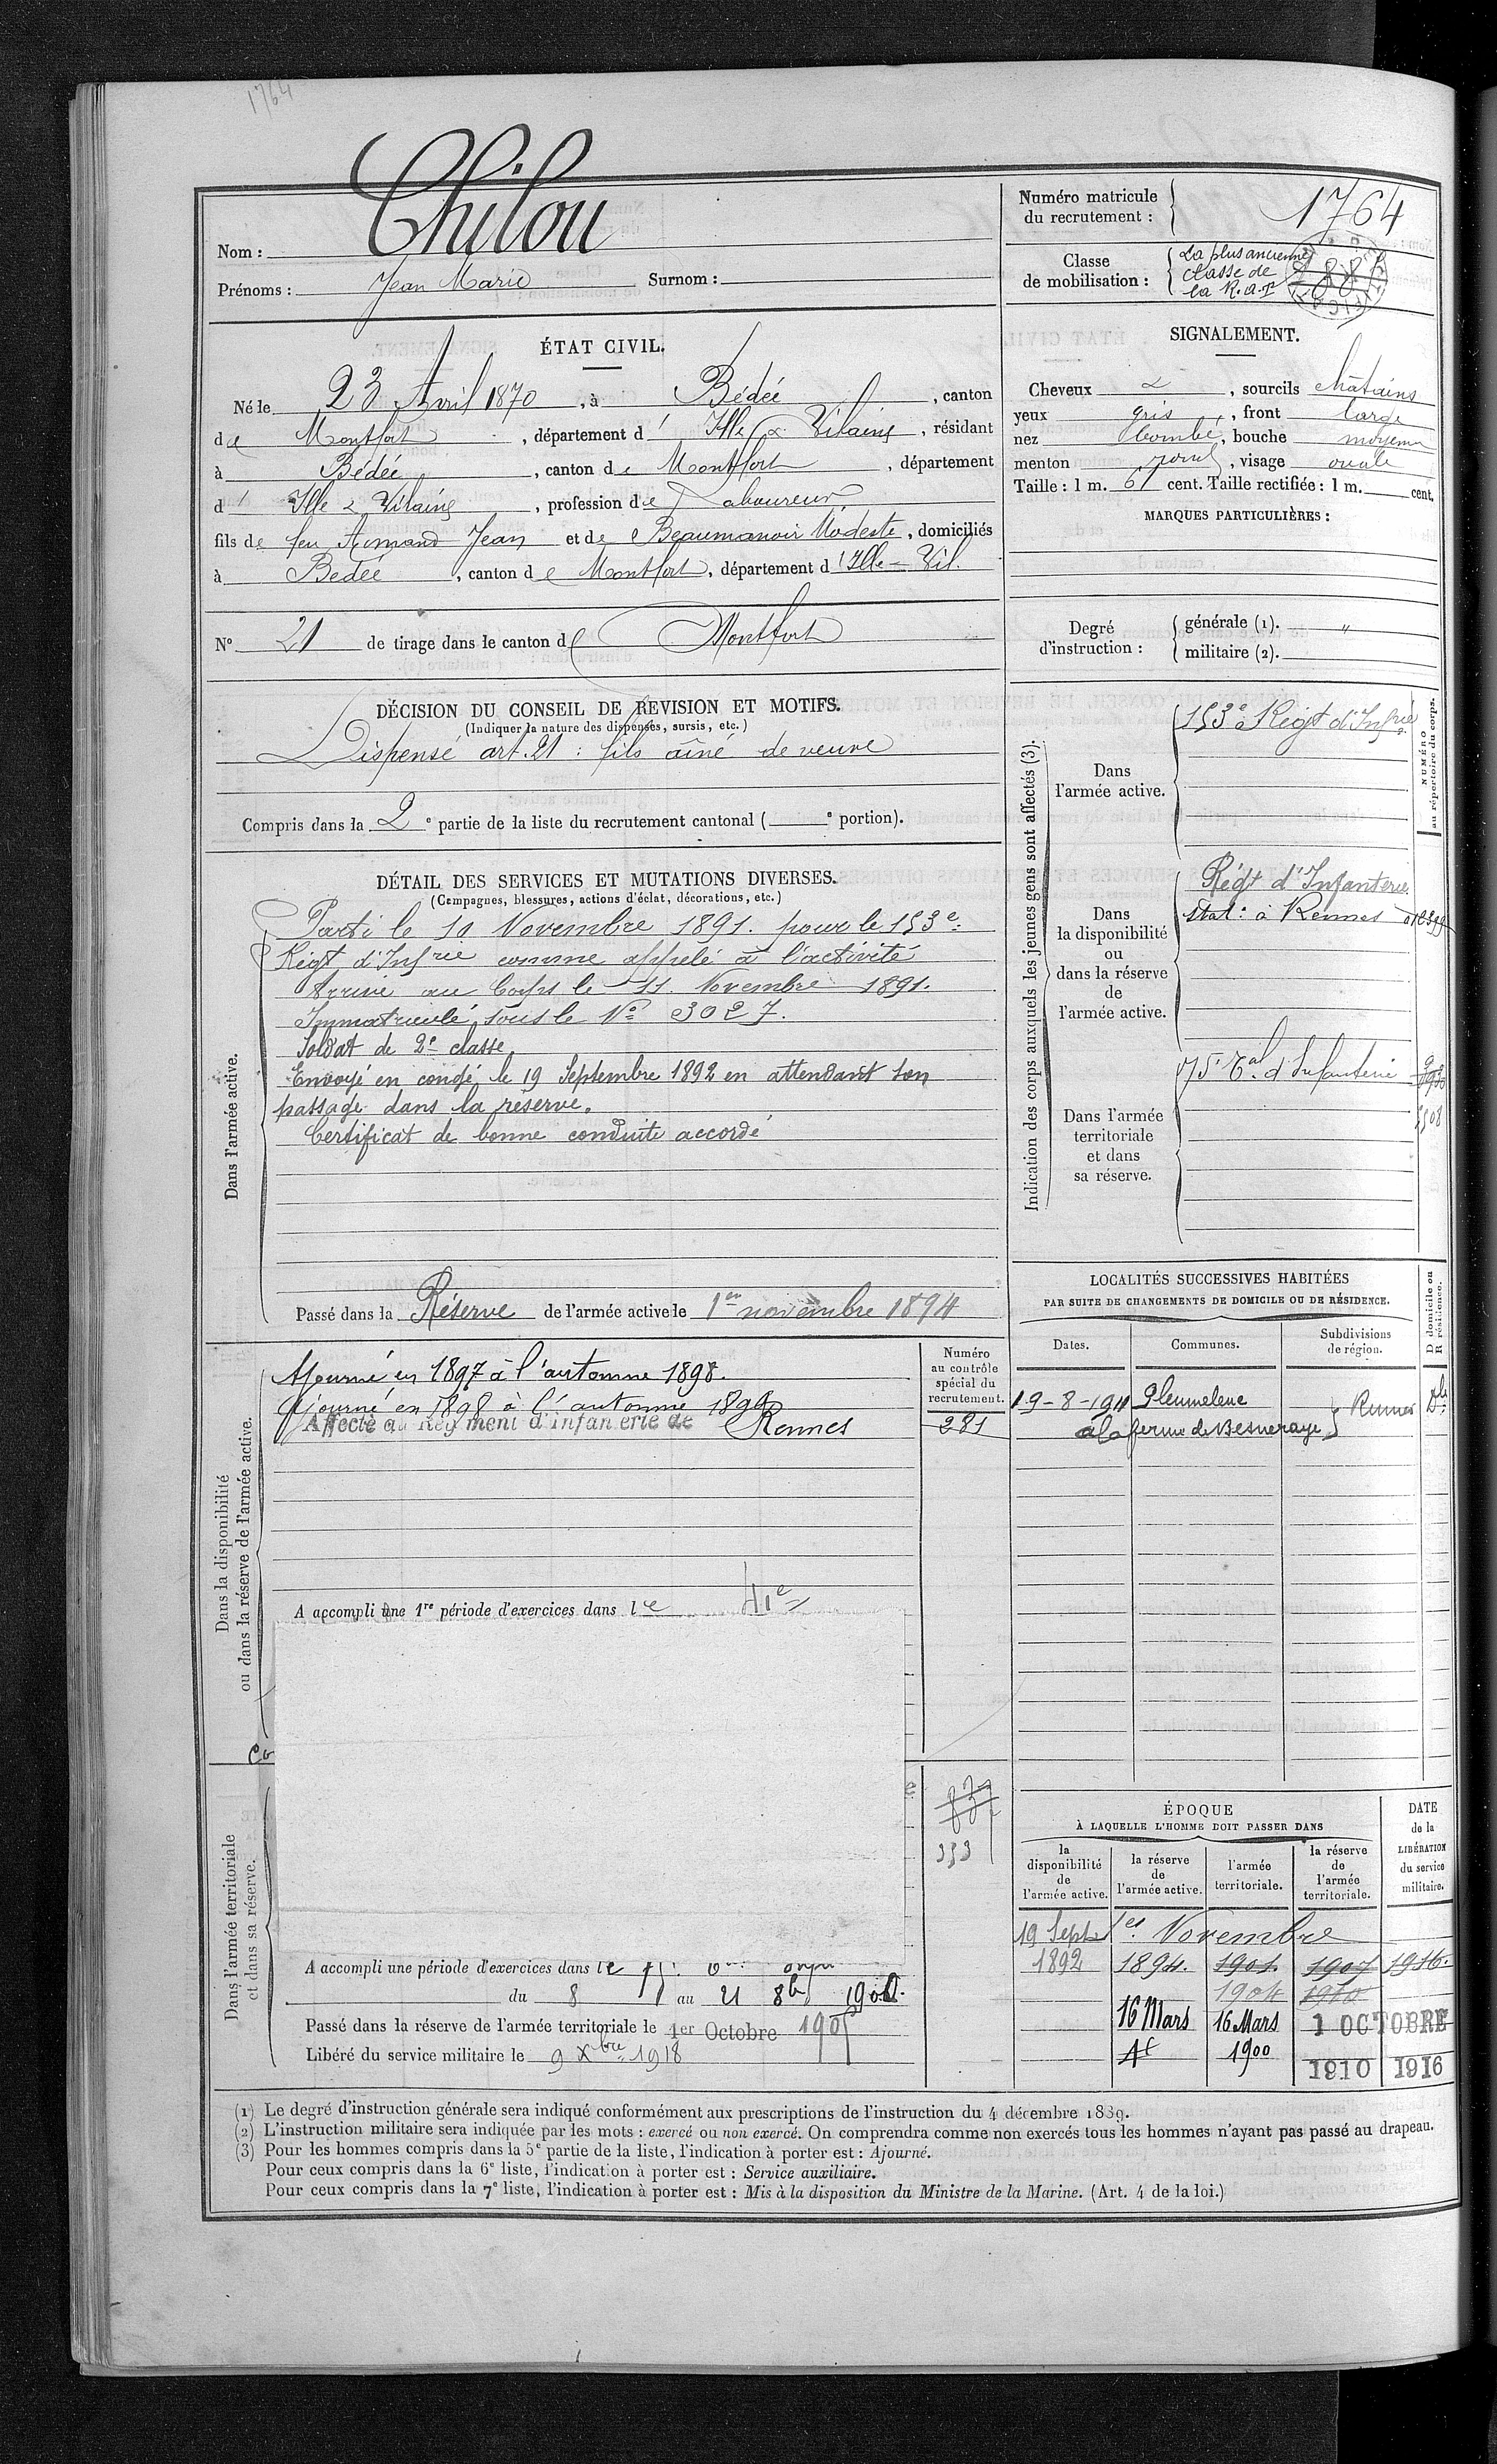 1764
Nom : Chilou
Prénoms : Jean Marie Surnom :
Numéro matricule du recrutement : 1764
Classe de mobilisation : La plus ancienne classe de la R.A.T
ÉTAT CIVIL.
Né le 23 Avril 1870, à Bédée, canton
de Montfort, département d' Ille & Vilaine, résidant
à Bédée, canton de Montfort, département
d' Ille & Vilaine, profession de Laboureur
fils de feu Armand Jean et de Beaumanoir Modeste, domiciliés
à Bédée, canton de Montfort, département d'Ille-Vil.
N° 21 de tirage dans le canton de Montfort
SIGNALEMENT.
Cheveux &, sourcils châtains
yeux gris, front large
nez bombé, bouche moyenne
menton rond, visage ovale
Taille : 1 m. 61 cent. Taille rectifiée : 1 m. cent.
MARQUES PARTICULIÈRES :
Degré d'instruction : générale (1). "
militaire (2).
DÉCISION DU CONSEIL DE REVISION ET MOTIFS.
(Indiquer la nature des dispenses, sursis, etc.)
Dispensé art. 21 : fils aîné de veuve
Compris dans la 2e partie de la liste du recrutement cantonal ( e portion).
DÉTAIL DES SERVICES ET MUTATIONS DIVERSES.
(Campagnes, blessures, actions d'éclat, décorations, etc.)
Dans l'armée active.
Parti le 10 Novembre 1891. pour le 153e
Régt d'Infrie comme appelé à l'activité
Arrivé au Corps le 11 Novembre 1891.
Immatriculé sous le No 3027.
Soldat de 2e classe
Envoyé en congé le 19 Septembre 1892 en attendant son
passage dans la réserve.
Certificat de bonne conduite accordé
Passé dans la Réserve de l'armée active le 1er novembre 1894
Indication des corps auxquels les jeunes gens sont affectés (3).
NUMÉRO au répertoire du corps.
Dans l'armée active.
153e Régt d'Infrie
Dans la disponibilité ou dans la réserve de l'armée active.
Régt d'Infanterie
stat. à Rennes
Dans l'armée territoriale et dans sa réserve.
75e Tal d'Infanterie
Dans la disponibilité ou dans la réserve de l'armée active.
Numéro au contrôle spécial du recrutement.
Ajourné en 1897 à l'automne 1898.
Ajourné en 1898 à l'automne 1899
Affecté au Régiment d'infanterie de Rennes
281
A accompli une 1re période d'exercices dans le 41e
353
Dans l'armée territoriale et dans sa réserve.
A accompli une période d'exercices dans le
du 8 au 21 8b
Passé dans la réserve de l'armée territoriale le 1er Octobre
Libéré du service militaire le 9 Xbre 1918
LOCALITÉS SUCCESSIVES HABITÉES
PAR SUITE DE CHANGEMENTS DE DOMICILE OU DE RÉSIDENCE.
D domicile ou R résidence.
Dates. Communes. Subdivisions de région.
19-8-1911 Pleumeleuc Rennes
à la ferme de Besneraye
ÉPOQUE
À LAQUELLE L'HOMME DOIT PASSER DANS
la disponibilité de l'armée active.
la réserve de l'armée active.
l'armée territoriale.
la réserve de l'armée territoriale.
DATE de la LIBÉRATION du service militaire.
19 Sept 1er Novembre
1892 1894. 1901. 1907 1916.
1904 1910
16 Mars 16 Mars 1 OCTOBRE
1900 1910 1916
(1) Le degré d'instruction générale sera indiqué conformément aux prescriptions de l'instruction du 4 décembre 1889.
(2) L'instruction militaire sera indiquée par les mots : exercé ou non exercé. On comprendra comme non exercés tous les hommes n'ayant pas passé au drapeau.
(3) Pour les hommes compris dans la 5e partie de la liste, l'indication à porter est : Ajourné.
Pour ceux compris dans la 6e liste, l'indication à porter est : Service auxiliaire.
Pour ceux compris dans la 7e liste, l'indication à porter est : Mis à la disposition du Ministre de la Marine. (Art. 4 de la loi.)